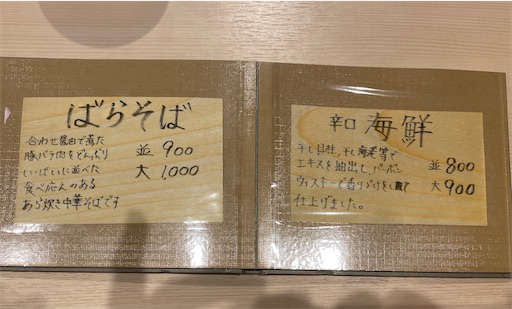 ばらそば
合わせ醤油で煮た
豚バラ肉をどんぶり
いっぱいに並べた
食べ応えのある
あら炊き中華そばです
並 900
大 1,000
辛口 海鮮
干し貝柱、干し海老等で
エキスを抽出し、バーボン
ウィスキーで香りづけをし
仕上げました。
並 800
大 900